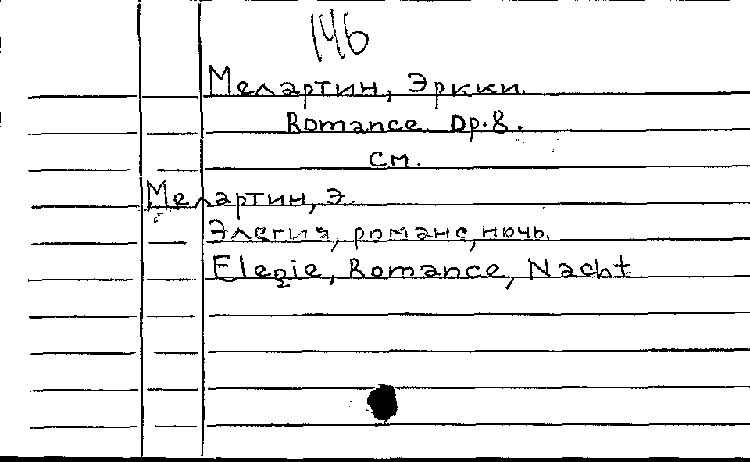 146
Мелартин, Эркки.
Romance. Op.8.
см.
Мелартин, Э.
Элегия, романс, ночь.
Elegie, Romance, Nacht